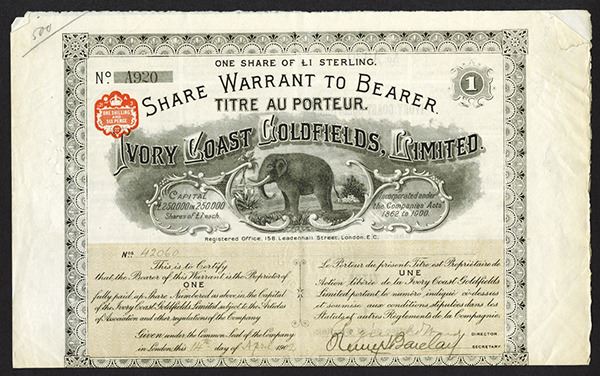 500
ONE SHARE OF £1 STERLING.
No A920
SHARE WARRANT TO BEARER.
TITRE AU PORTEUR.
1
ONE SHILLING
AND
SIX PENCE
IVORY COAST GOLDFIELDS, LIMITED.
CAPITAL
£250,000 IN 250,000
Shares of £1 each.
Incorporated under
the Companies Acts
1862 to 1900.
Registered Office, 158, Leadenhall Street, London, E.C.
No. 42060
This is to Certify
that the Bearer of this Warrant is the Proprietor of
ONE
fully paid up Share Numbered as above, in the Capital
of the Ivory Coast Goldfields Limited, subject to the Articles
of Association and other regulations of the Company.
Given under the Common Seal of the Company
in London, this 14th day of April 190
Le Porteur du présent Titre est Propriétaire de
UNE
Action Libérée de la Ivory Coast Goldfields
Limited portant le numéro indiqué ci-dessus
et soumise aux conditions stipulées dans les
Statuts et autres Règlements de la Compagnie.
DIRECTOR
Barclay
SECRETARY